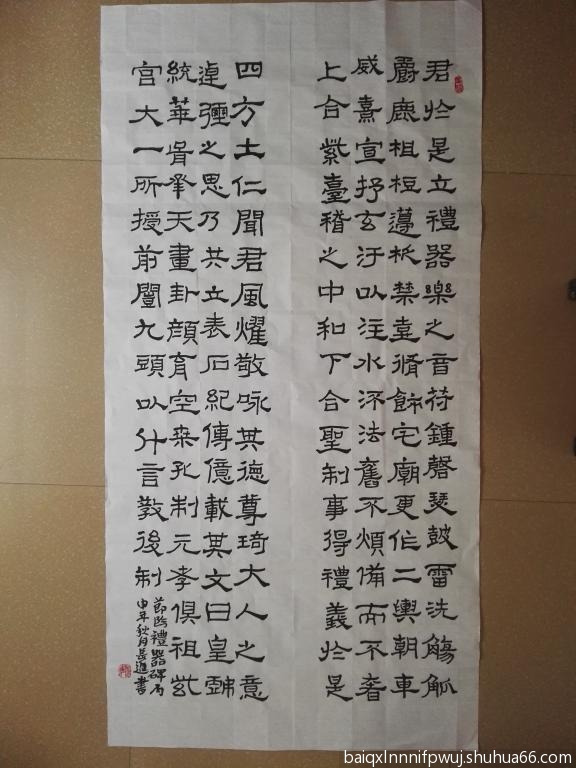 君於是立禮器樂之音苻鍾磬瑟鼓雷洗觴觚
爵鹿柤梪籩柉禁壺脩飾宅廟更作二輿朝車
威熹宣抒玄汙以注水流法舊不煩備而不奢
上合紫臺稽之中和下合聖制事得禮義於是
四方土仁聞君風燿敬咏其德尊琦大人之意
逴彌之思乃共立表石紀傳億載其文曰皇戲
統華胥承天畫卦顏育空桒孔制元孝俱祖紫
宮大一所授前闓九頭以什言教後制
節臨禮器碑丙
申年秋月岳進書
baiqxlnnnifpwuj.shuhua66.com